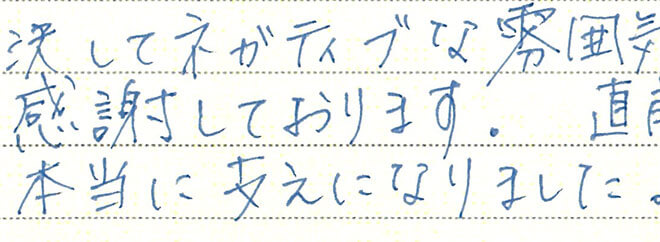 決してネガティブな雰囲気
感謝しております。 直
本当に支えになりました。